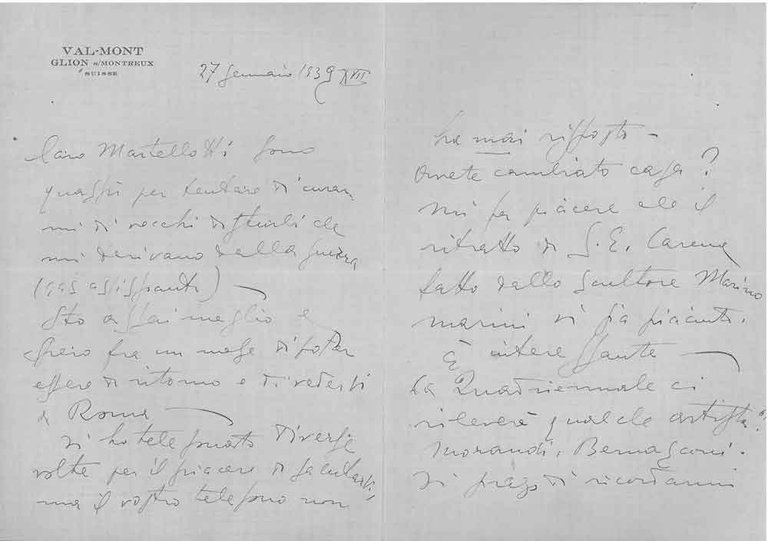 VAL-MONT
GLION s/MONTREUX
SUISSE
27 Gennaio 1939 XVII
Caro Martellotti sono
quassù per tentare di curar
mi di vecchi disturbi che
mi derivano dalla guerra
(gas asfissianti) —
Sto assai meglio e
spero fra un mese di poter
essere di ritorno e di vedervi
a Roma —
Vi ho telefonato diverse
volte per il piacere di salutarvi,
ma il vostro telefono non
ha mai risposto —
Avete cambiato casa?
Mi fa piacere che il
ritratto di S. E. Carena
fatto dallo scultore Marino
Marini vi sia piaciuto.
È interessante —
La Quadriennale ci
rileverà qualche artista?
Morandi, Bernasconi.
Vi prego di ricordarmi